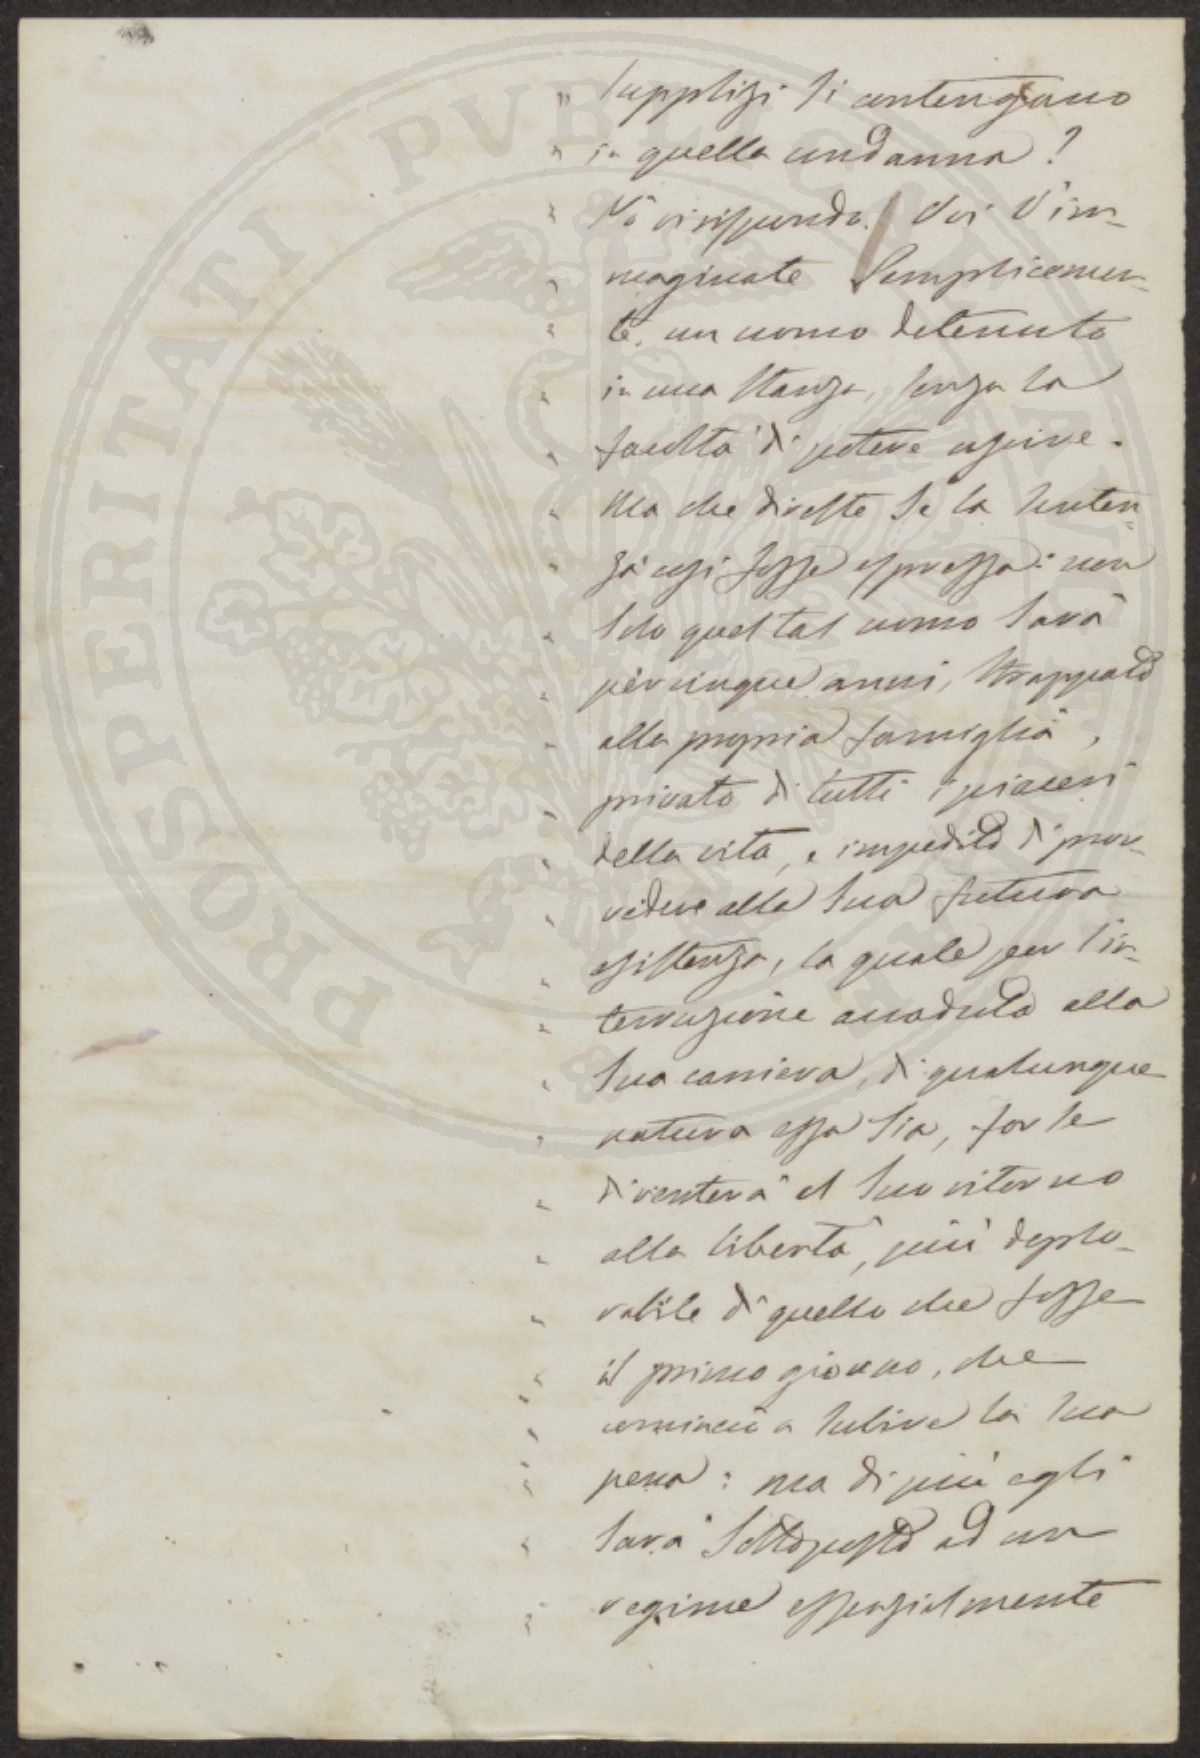 " supplizi si contengano
" in quella condanna?
" No vi rispondo. Voi v'im-
" maginate semplicemen-
" te, un uomo detenuto
" in una stanza, senza la
" facoltà di potere uscire.
" Ma che direste se la senten-
" za così fosse espressa: non
" solo quel tal uomo sarà
" per cinque anni, strappato
" alla propria famiglia,
" privato di tutti i piaceri
" della vita, e impedito di prov-
" vedere alla sua futura
" esistenza, la quale per l'in-
" terruzione accaduta alla
" sua carriera, di qualunque
" natura essa sia, forse
" diventerà al suo ritorno
" alla libertà, più deplo-
" rabile di quello che fosse
" il primo giorno, che
" cominciò a subire la sua
" pena: ma di più egli
" sarà sottoposto ad un
" regime essenzialmente
PROSPERITATI PUBLICAE